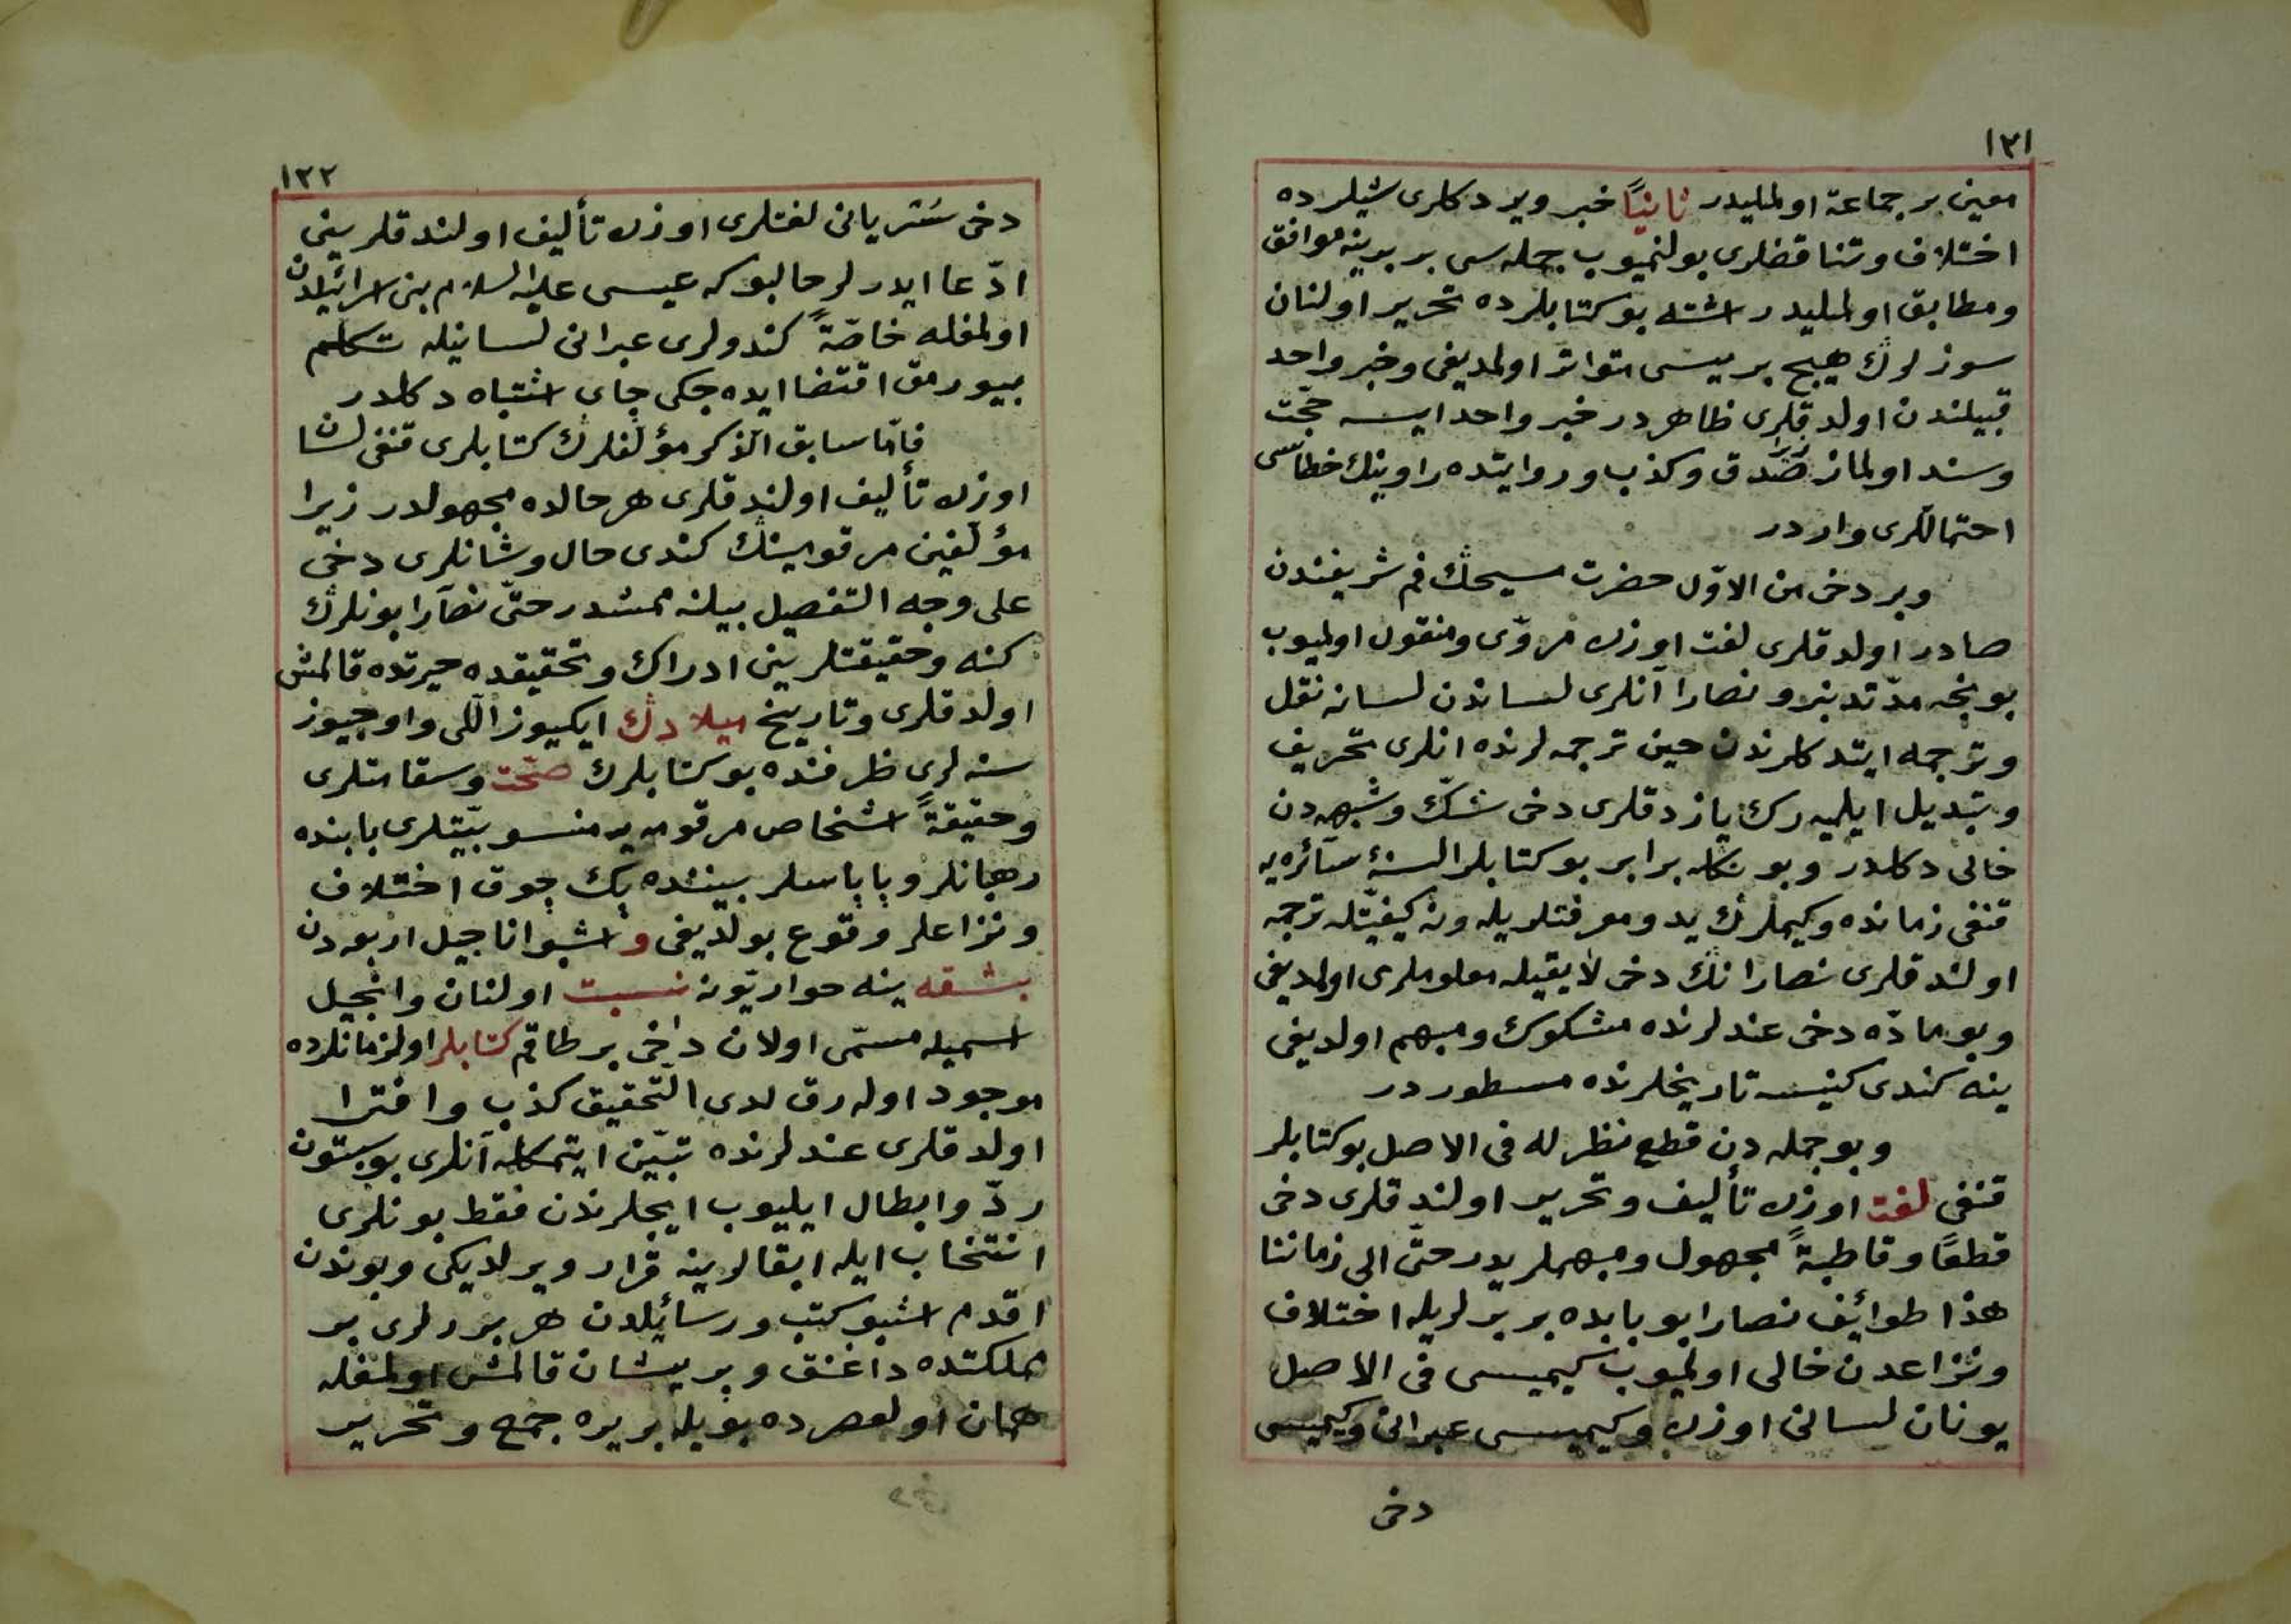 ١٢١
معین بر جماعة اولملیدر ثانیًا خبر ویردكلری شیلرده
اختلاف وتناقضلری بولنمیوب جمله سی بر برینه موافق
ومطابق اولملیدر اشته بو كتابلرده تحریر اولنان
سوزلرڭ هیچ بریسی متواتر اولمدیغی وخبر واحد
قبیلندن اولدقلری ظاهردر خبر واحد ایسه حجّت
وسند اولماز صدق وكذب وروایتده راوینڭ خطاسی
احتماللری واردر
وبر دخی من الاوّل حضرت مسیحڭ فم شریفندن
صادر اولدقلری لغت اوزره مروّی ومنقول اولمیوب
بو نجه مدّتدنبرو نصارا آنلری لساندن لسانه نقل
وترجمه ایتدكلرندن حین ترجمه لرنده انلری تحریف
وتبدیل ایلیه رك یازدقلری دخی شكّ وشبهه دن
خالی دكلدر وبونكله برابر بو كتابلر السنهٔ سائره یه
قنغی زمانده وكیملرڭ ید ومعرفتلریله ونه كیفیّتله ترجمه
اولندقلری نصارانڭ دخی لایقیله معلوملری اولمدیغی
وبو مادّه دخی عندلرنده مشكوك ومبهم اولدیغی
ینه كندی كنیسه تاریخلرنده مسطوردر
وبو جمله دن قطع نظرله فی الاصل بو كتابلر
قنغی لغت اوزره تألیف وتحریر اولندقلری دخی
قطعًا وقاطبةً مجهول ومبهملریدر حتّی الی زماننا
هذا طوائف نصارا بو بابده بر برلریله اختلاف
ونزاعدن خالی اولمیوب كیمیسی فی الاصل
یونان لسانی اوزره وكیمیسی عبرانی وكیمیسی
دخی
١٢٢
دخی سُتریانی لغتلری اوزره تألیف اولندقلرینی
ادّعا ایدرلر حالبوكه عیسی علیه السلام بنی اسرائیلدن
اولمغله خاصّةً كندولری عبرانی لسانیله تكلّم
بیورمق اقتضا ایده جكی جای اشتباه دكلدر
فامّا سابق الذّكر مؤلفلرڭ كتابلری قنغی لسان
اوزره تألیف اولندقلری هر حالده مجهولدر زیرا
مؤلّفین مرقومینڭ كندی حال وشانلری دخی
علی وجه التفصیل بیلنه ممشدر حتّی نصارا بونلرڭ
كنه وحقیقتلرینی ادراك وتحقیقده حیرتده قالمش
اولدقلری وتاریخ میلادڭ ایكیوز اللی واوچیوز
سنه لری ظرفنده بو كتابلرڭ صحّت وسقامتلری
وحقیقةً اشخاص مرقومه یه منسوبیّتلری بابنده
رهبانلر وپاپاسلر بیننده پك چوق اختلاف
ونزاعلر وقوع بولدیغی واشبو اناجیل اربعه دن
بشقه ینه حواریّونه نسبت اولنان وانجیل
اسمیله مسمّی اولان داخی بر طاقم كتابلر اولزمانلرده
موجود اوله رق لدی التّحقیق كذب وافترا
اولدقلری عندلرنده تبیّن ایتمكله آنلری بوسبتون
ردّ وابطال ایلیوب ایچلرندن فقط بونلری
انتخاب ایله ابقالرینه قرار ویرلدیكی وبوندن
اقدم اشبو كتب ورسائلدن هر بررلری بر
مملكتده داغنق وپریشان قالمش اولمغله
همان اولعصرده بویله بریره جمع وتحریر